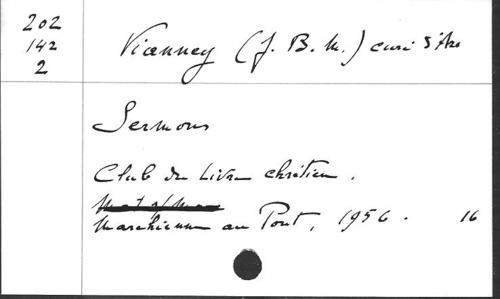 202
142
2
Vianney (J. B. M.) curé d'Ars
Sermons
Club du Livre chrétien.
Marchienne au Pont, 1956. 16